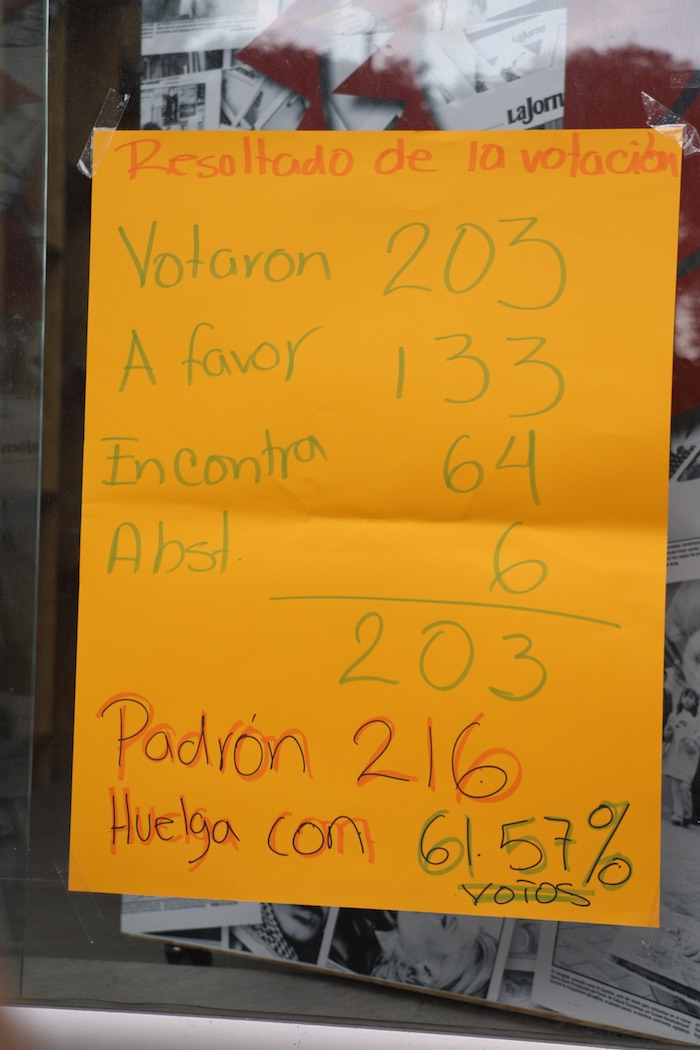 LaJorn
Resoltado de la votación
Votaron 203
A favor 133
En contra 64
Abst. 6
203
Padrón 216
Huelga con 61.57%
votos